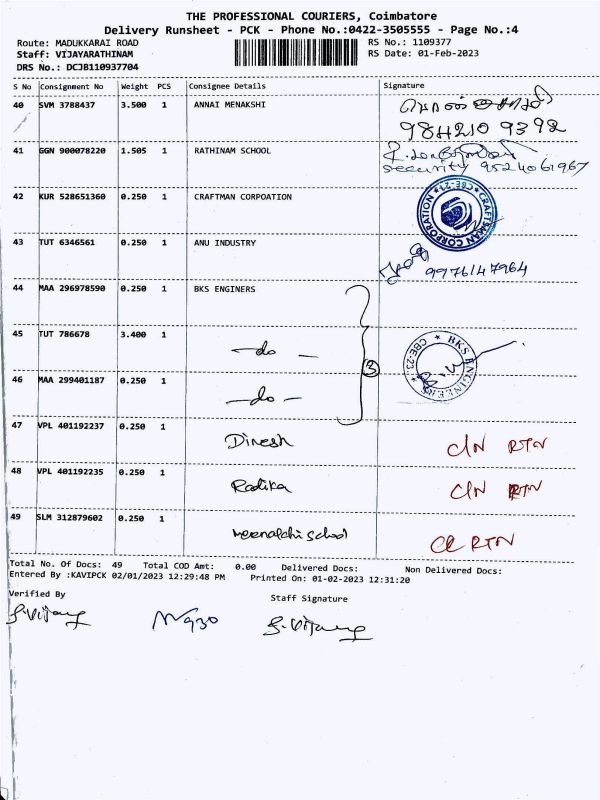 THE PROFESSIONAL COURIERS, Coimbatore
Delivery Runsheet - PCK - Phone No.:0422-3505555 - Page No.:4
Route: MADUKKARAI ROAD RS No.: 1109377
Staff: VIJAYARATHINAM RS Date: 01-Feb-2023
DRS No.: DCJB110937704
S No Consignment No Weight PCS Consignee Details Signature
40 SVM 3788437 3.500 1 ANNAI MENAKSHI
984210 9392
41 GGN 900078220 1.505 1 RATHINAM SCHOOL
security 9524061967
42 KUR 528651360 0.250 1 CRAFTMAN CORPOATION
CRAFTSMAN CORPORATION ★ CBE-21 ★
43 TUT 6346561 0.250 1 ANU INDUSTRY
9976147964
44 MAA 296978590 0.250 1 BKS ENGINERS
45 TUT 786678 3.400 1 —do — 3
BKS ENGINEERS ★ CBE-23. ★
46 MAA 299401187 0.250 1 —do —
47 VPL 401192237 0.250 1 Dinesh C/N RTN
48 VPL 401192235 0.250 1 Radika C/N RTN
49 SLM 312879602 0.250 1 meenalchi school CR RTN
Total No. Of Docs: 49 Total COD Amt: 0.00 Delivered Docs: Non Delivered Docs:
Entered By :KAVIPCK 02/01/2023 12:29:48 PM Printed On: 01-02-2023 12:31:20
Verified By Staff Signature